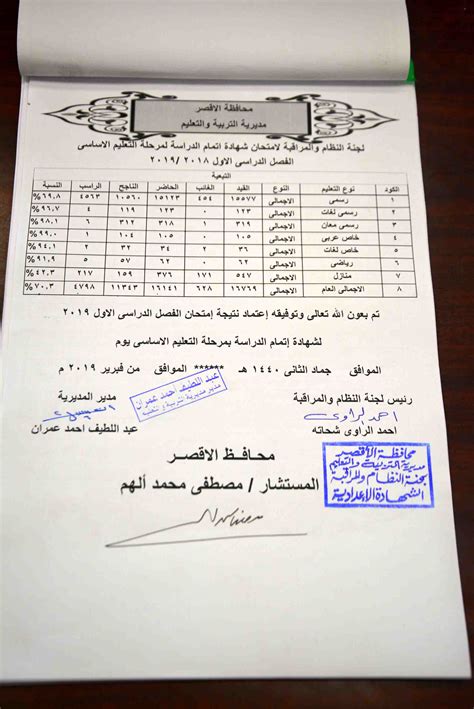 محافظة الاقصر
مديرية التربية والتعليم
لجنة النظام والمراقبة لامتحان شهادة اتمام الدراسة لمرحلة التعليم الاساسى
الفصل الدراسى الاول ٢٠١٨ /٢٠١٩
التبعية
الكود نوع التعليم النوع القيد الغائب الحاضر الناجح الراسب النسبة
١ رسمى الاجمالى ١٥٥٧٧ ٤٥٤ ١٥١٢٣ ١٠٥٦٠ ٤٥٦٣ ٦٩,٨%
٢ رسمى لغات الاجمالى ١٢٣ ٠ ١٢٣ ١١٩ ٤ ٩٦,٧%
٣ رسمى معان الاجمالى ٣١٩ ١ ٣١٨ ٣١٢ ٦ ٩٨,١%
٤ خاص عربى الاجمالى ١٠٥ ٠ ١٠٥ ١٠٤ ١ ٩٩,٠%
٥ خاص لغات الاجمالى ٣٦ ٢ ٣٤ ٣٢ ٢ ٩٤,١%
٦ رياضى الاجمالى ٦٢ ٠ ٦٢ ٥٧ ٥ ٩١,٩%
٧ منازل الاجمالى ٥٤٧ ١٧١ ٣٧٦ ١٥٩ ٢١٧ ٤٢,٣%
٨ الاجمالى العام الاجمالى ١٦٧٦٩ ٦٢٨ ١٦١٤١ ١١٣٤٣ ٤٧٩٨ ٧٠,٣%
تم بعون الله تعالى وتوفيقه إعتماد نتيجة إمتحان الفصل الدراسى الاول ٢٠١٩
لشهادة إتمام الدراسة بمرحلة التعليم الاساسى يوم
الموافق جماد الثانى ١٤٤٠ هـ ****** الموافق من فبراير ٢٠١٩ م
رئيس لجنة النظام والمراقبة مدير المديرية
عبد اللطيف احمد عمران
مدير مديرية التربية و
احمد الراوى
احمد الراوى شحاته عبد اللطيف احمد عمران
محافظ الاقصر
المستشار / مصطفى محمد ألهم
محافظة الأقصر
مديرية التربية والتعليم
لجنة النظام والمراقبة
الشهادة الإعدادية